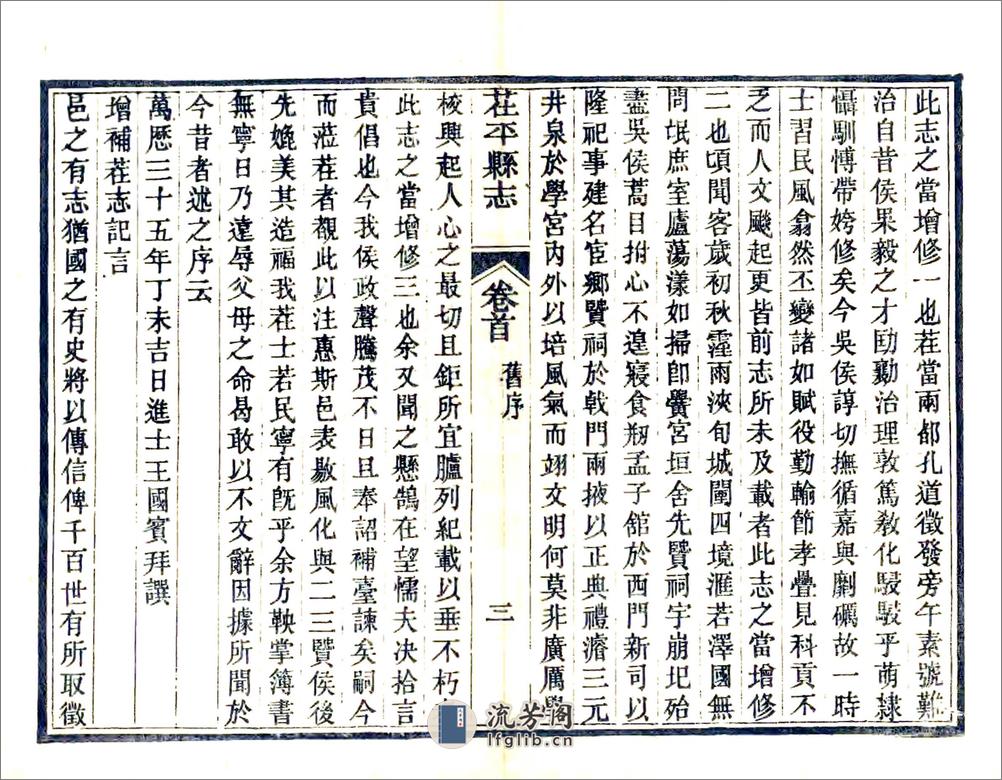 此志之當增修一也茬當兩都孔道徵發旁午素號難
治自昔侯果毅之才劻勷治理敦篤敎化駸駸乎萌隷
懾馴愽帶姱修矣今吳侯諄切撫循嘉與劘礪故一時
士習民風翕然丕變諸如賦役勤輸節孝疊見科貢不
乏而人文颷起更皆前志所未及載者此志之當增修
二也頃聞客歲初秋霪雨浹旬城闉四境滙若澤國無
問氓庶室廬蕩漾如掃卽黌宮垣舍先賢祠宇崩圯殆
盡吳侯蒿目拊心不遑寢食剏孟子舘於西門新司以
隆祀事建名宦鄉賢祠於戟門兩掖以正典禮濬三元
井泉於學宮內外以培風氣而翊文明何莫非廣厲學
茬平縣志
卷首
舊序
三
校興起人心之最切且鉅所宜臚列紀載以垂不朽
此志之當增修三也余又聞之懸鵠在望懦夫决拾言
貴倡也今我侯政聲騰茂不日且奉詔補臺諫矣嗣今
而蒞茬者觀此以注惠斯邑表勵風化與二三賢侯後
先媲美其造福我茬士若民寧有旣乎余方鞅掌簿書
無寧日乃遠辱父母之命曷敢以不文辭因據所聞於
今昔者述之序云
萬歷三十五年丁未吉日進士王國賓拜譔
增補茬志記言
邑之有志猶國之有史將以傳信俾千百世有所取徵
流芳閣
lfglib.cn